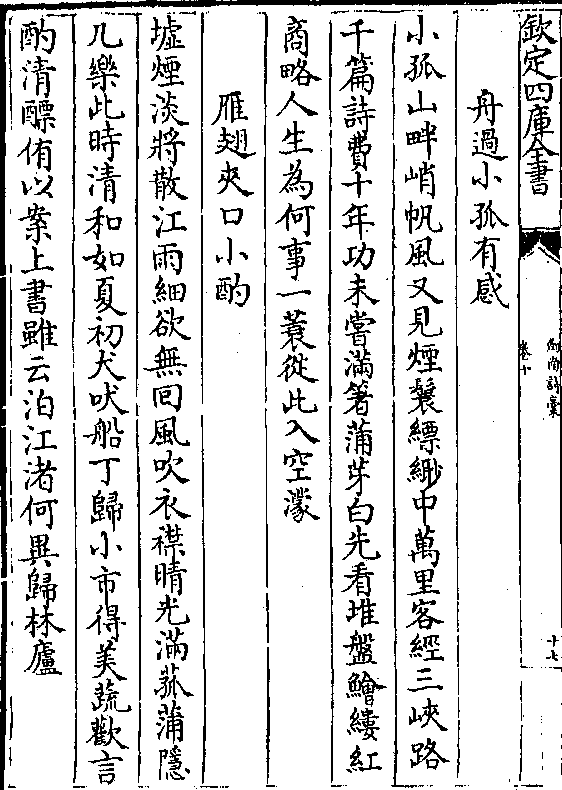 欽定四庫全書
劍南詩稾
卷十
十七
舟過小孤有感
小孤山畔峭帆風又見煙鬟縹緲中萬里客經三峽路
千篇詩費十年功未嘗滿箸蒲芽白先看堆盤鱠縷紅
商略人生為何事一蓑從此入空濛
雁翅夾口小酌
墟煙淡將散江雨細欲無回風吹衣襟晴光滿菰蒲隱
几樂此時清和如夏初犬吠船丁歸小市得美蔬歡言
酌清醥侑以案上書雖云泊江渚何異歸林廬